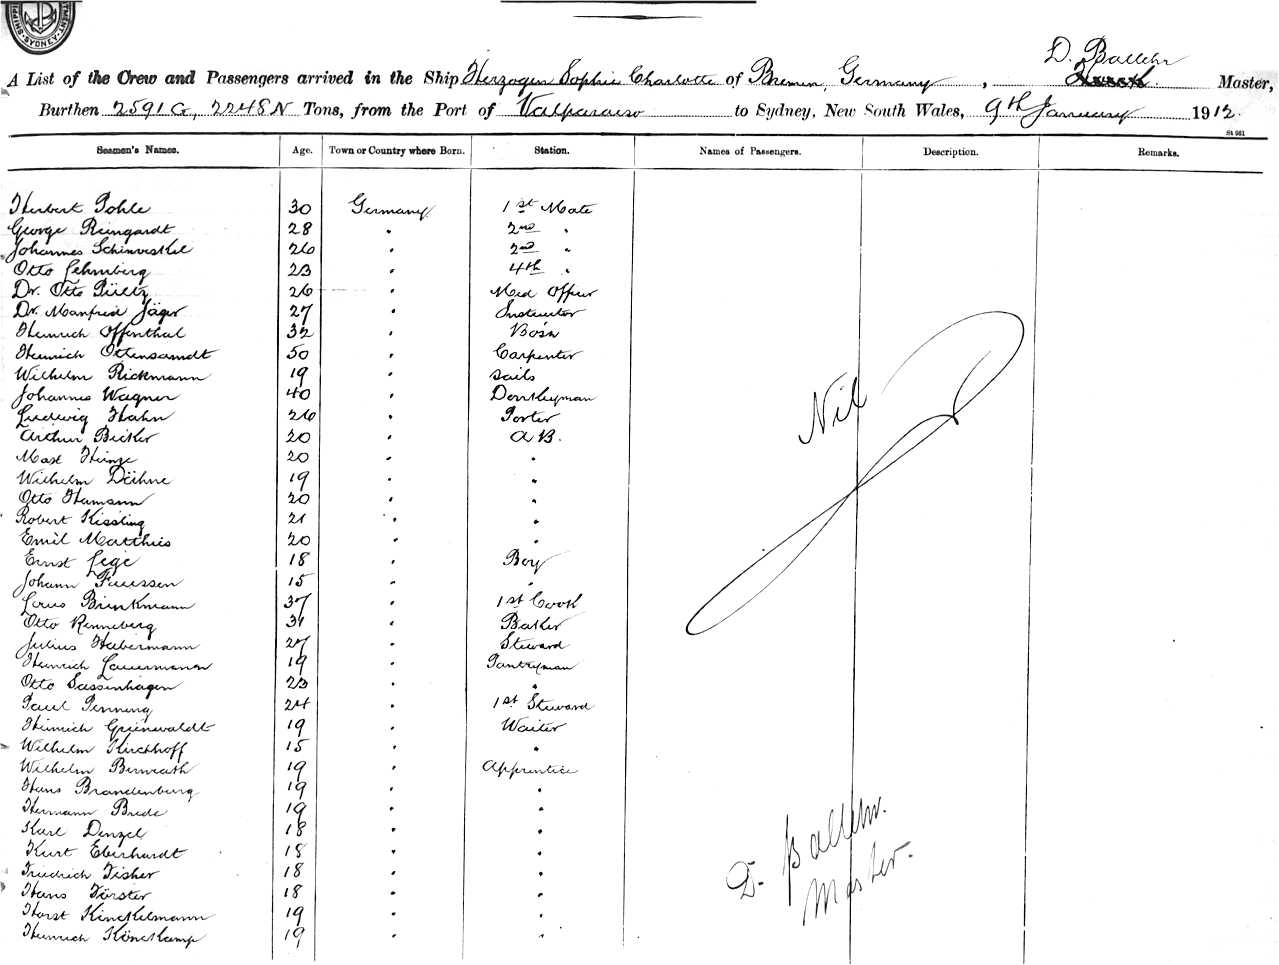 SHIPPING
SYDNEY
A List of the Crew and Passengers arrived in the Ship Herzogin Sophie Charlotte of Bremen, Germany, D. Ballehr Master,
Burthen 2591 G, 2248 N Tons, from the Port of Valparaiso to Sydney, New South Wales, 9th January 1912.
St 961
Seamen's Names. Age. Town or Country where Born. Station. Names of Passengers. Description. Remarks.
Herbert Pohle 30 Germany 1st Mate
George Reingardt 28 " 2nd "
Johannes 26 " 2nd "
Otto Lehmberg 23 " 4th "
Dr. Otto Pültz 26 " Med Officer
Dr. Manfred Jäger 27 " Instructor
Heinrich Offenthal 32 " Bo'sn
Heinrich Ottensamdt 50 " Carpenter
Wilhelm Rickmann 19 " Sails
Johannes Wagner 40 " Donkeyman
Ludwig Hahn 26 " Porter
Arthur Bicker 20 " A.B.
Max Heinze 20 " "
Wilhelm Dähne 19 " "
Otto Hamann 20 " "
Robert Kissling 21 " "
Emil Matthies 20 " "
Ernst Lege 18 " Boy
Johann Paulssen 15 " "
Louis Brinkmann 37 " 1st Cook
Otto Renneberg 31 " Baker
Julius Habermann 27 " Steward
Heinrich Lauermann 19 " Pantryman
Otto Sassenhagen 23 " "
Paul Penning 24 " 1st Steward
Heinrich Grünewaldt 19 " Waiter
Wilhelm Kirchhoff 15 " "
Wilhelm 19 " Apprentice
Hans Brandenburg 19 " "
Hermann Brede 19 " "
Karl Denzel 18 " "
Kurt Eberhardt 18 " "
Friedrich Fisher 18 " "
Hans Förster 18 " "
Horst Kinckelmann 19 " "
Heinrich Könekamp 19 " "
Nil
D. Ballehr.
Master.